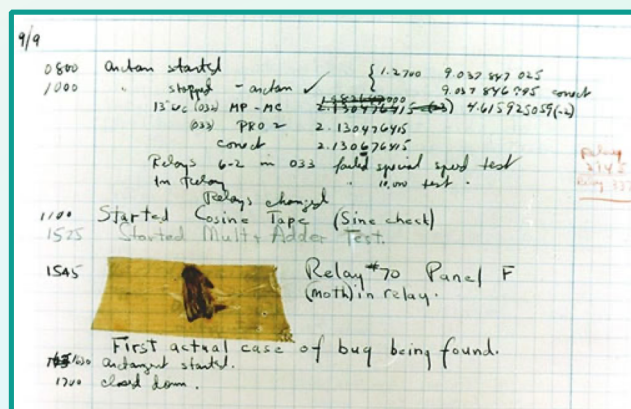 9/9
0800 antan started { 1.2700 9.037 847 025
1000 " stopped - antan ✓ 9.037 846 795 conect
13"uc (032) MP - MC 2.130476415 (-3) 4.615925059(-2)
(033) PRO 2 2.130476415
conect 2.130676415
Relays 6-2 in 033 failed special speed test
In Relay " 10,000 test.
Relays changed
Relay
1100 Started Cosine Tape (Sine check)
1525 Started Mult + Adder Test.
1545 Relay #70 Panel F
(moth) in relay.
First actual case of bug being found.
1630 antangent started.
1700 closed down.